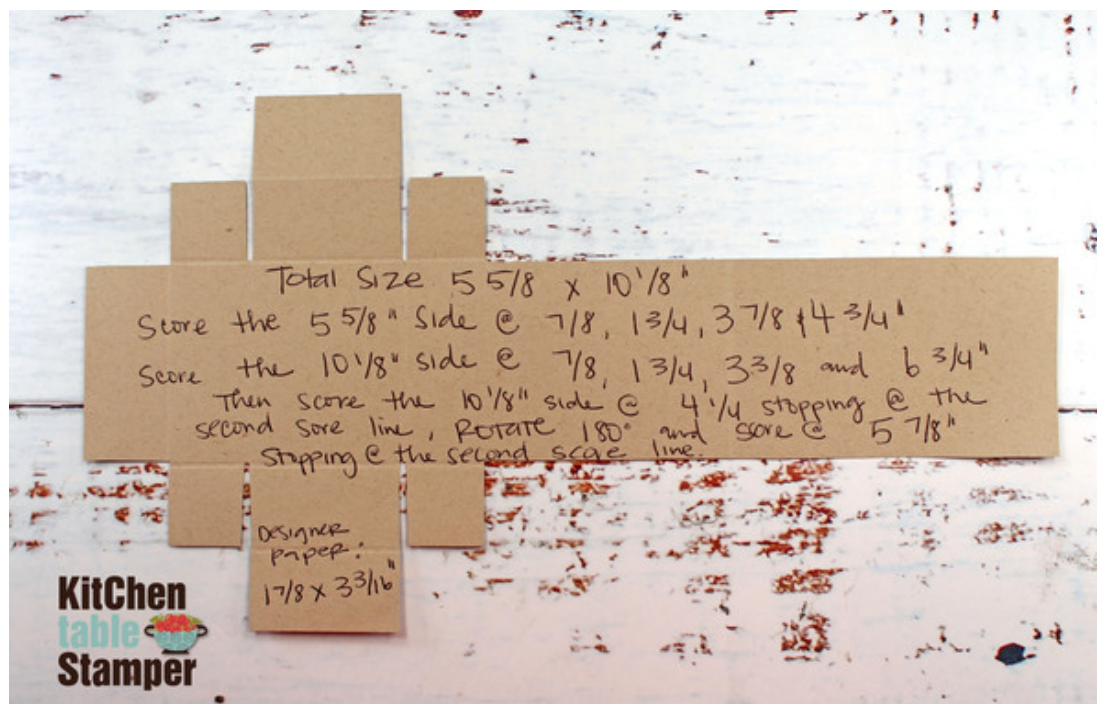 Total Size 5 5/8 x 10 1/8"
Score the 5 5/8" Side @ 7/8, 1 3/4, 3 7/8 & 4 3/4"
Score the 10 1/8" side @ 7/8, 1 3/4, 3 3/8 and 6 3/4"
Then score the 10 1/8" side @ 4 1/4 stopping @ the
second sore line, ROTATE 180° and score @ 5 7/8"
stopping @ the second score line.
Designer
paper:
1 7/8 x 3 3/16"
KitChen
table
Stamper